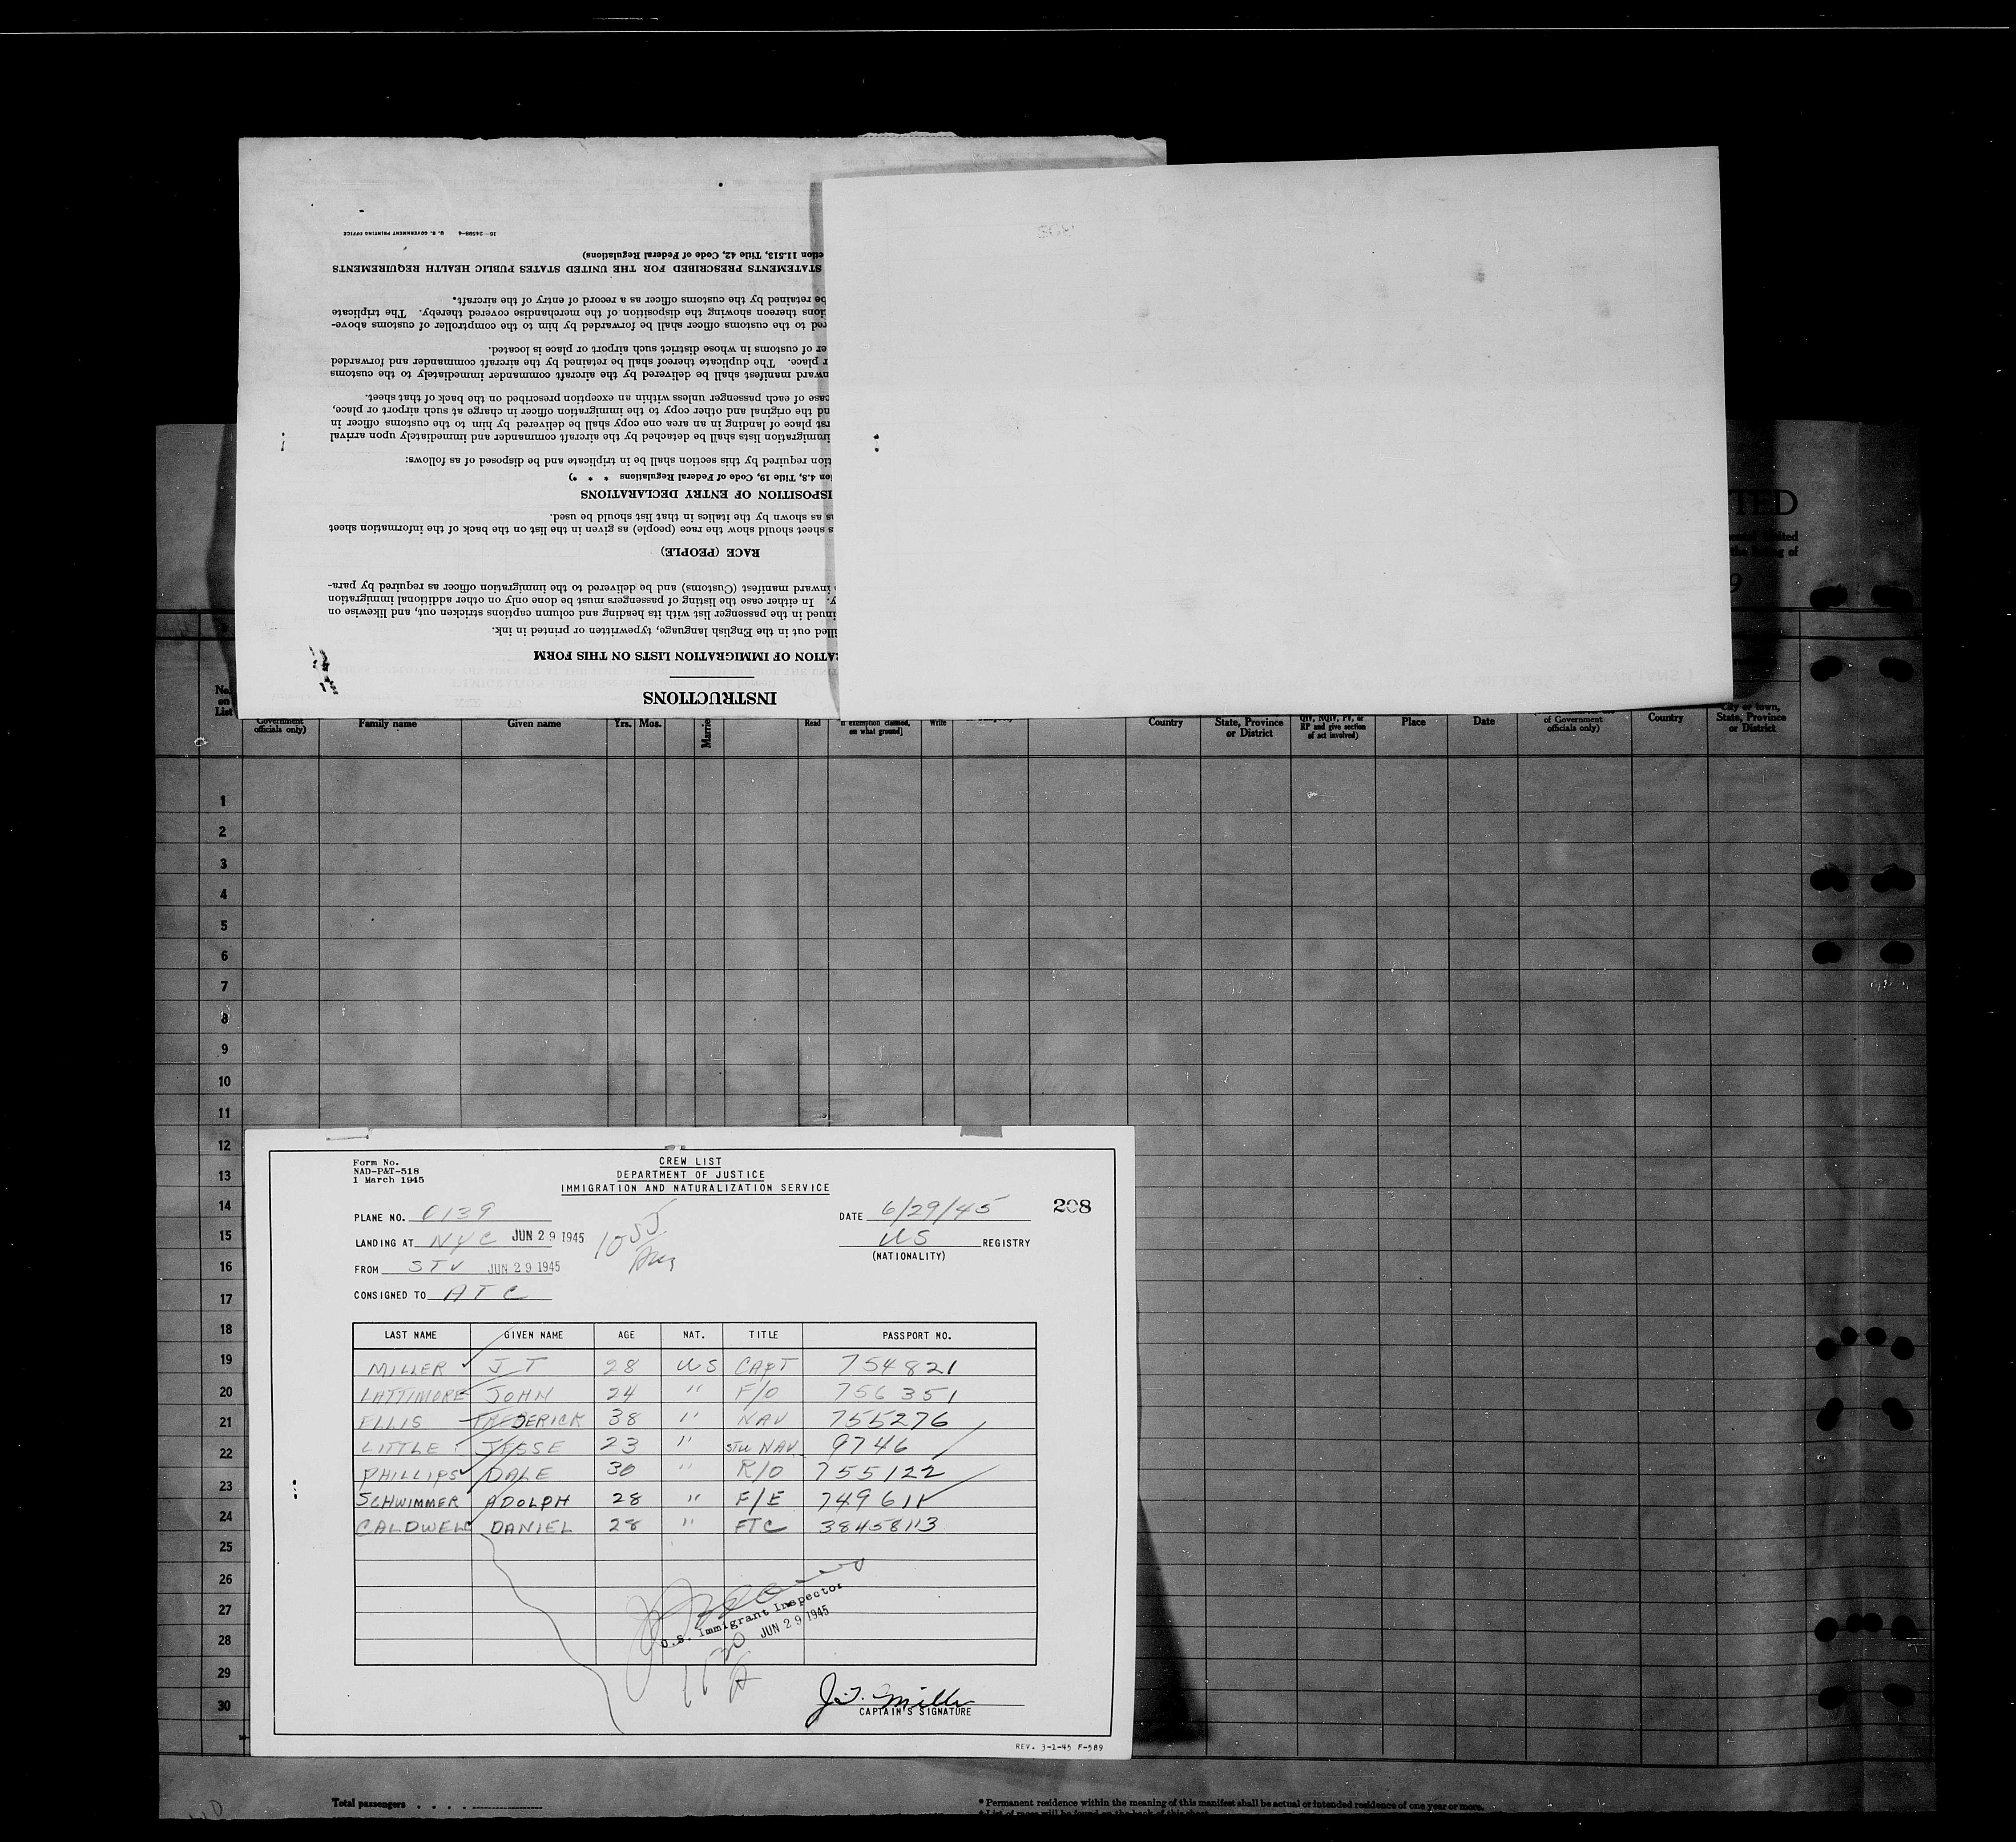 16—24598-4 U. S. GOVERNMENT PRINTING OFFICE
INSTRUCTIONS
ATION OF IMMIGRATION LISTS ON THIS FORM
illed out in the English language, typewritten or printed in ink.
inued in the passenger list with its heading and column captions stricken out, and likewise on
y. In either case the listing of passengers must be done only on other additional immigration
inward manifest (Customs) and be delivered to the immigration officer as required by para-
RACE (PEOPLE)
s sheet should show the race (people) as given in the list on the back of the information sheet
as as shown by the italics in that list should be used.
ISPOSITION OF ENTRY DECLARATIONS
ion 4.8, Title 19, Code of Federal Regulations * * *)
tion required by this section shall be in triplicate and be disposed of as follows:
immigration lists shall be detached by the aircraft commander and immediately upon arrival
rst place of landing in an area one copy shall be delivered by him to the customs officer in
nd the original and other copy to the immigration officer in charge at such airport or place,
case of each passenger unless within an exception prescribed on the back of that sheet.
nward manifest shall be delivered by the aircraft commander immediately to the customs
r place. The duplicate thereof shall be retained by the aircraft commander and forwarded
er of customs in whose district such airport or place is located.
red to the customs officer shall be forwarded by him to the comptroller of customs above-
ions thereon showing the disposition of the merchandise covered thereby. The triplicate
be retained by the customs officer as a record of entry of the aircraft.
STATEMENTS PRESCRIBED FOR THE UNITED STATES PUBLIC HEALTH REQUIREMENTS
ction 11.513, Title 42, Code of Federal Regulations)
TED
No. on List
Government officials only)
Family name
Given name
Yrs.
Mos.
Read
if exemption claimed, on what ground]
Write
Country
State, Province or District
QIV, NQIV, PV, or RP and give section of act involved)
Place
Date
of Government officials only)
Country
City or town, State, Province or District
1
2
3
4
5
6
7
8
9
10
11
12
13
14
15
16
17
18
19
20
21
22
23
24
25
26
27
28
29
30
Form No.
NAD-P&T-518
1 March 1945
CREW LIST
DEPARTMENT OF JUSTICE
IMMIGRATION AND NATURALIZATION SERVICE
208
PLANE NO. 0139
DATE 6/29/45
LANDING AT NYC JUN 29 1945
US REGISTRY
(NATIONALITY)
FROM STV JUN 29 1945
CONSIGNED TO ATC
LAST NAME GIVEN NAME AGE NAT. TITLE PASSPORT NO.
MILLER J T 28 US CAPT 754821
LATTIMORE JOHN 24 " F/O 756351
ELLIS FREDERICK 38 " NAV 755276
LITTLE JESSE 23 " STU NAV 9746
PHILLIPS DALE 30 " R/O 755122
SCHWIMMER ADOLPH 28 " F/E 749611
CALDWELL DANIEL 28 " FTC 38458113
U.S. Immigrant Inspector
JUN 29 1945
J.T. Miller
CAPTAIN'S SIGNATURE
REV. 3-1-45 F-589
Total passengers
* Permanent residence within the meaning of this manifest shall be actual or intended residence of one year or more.